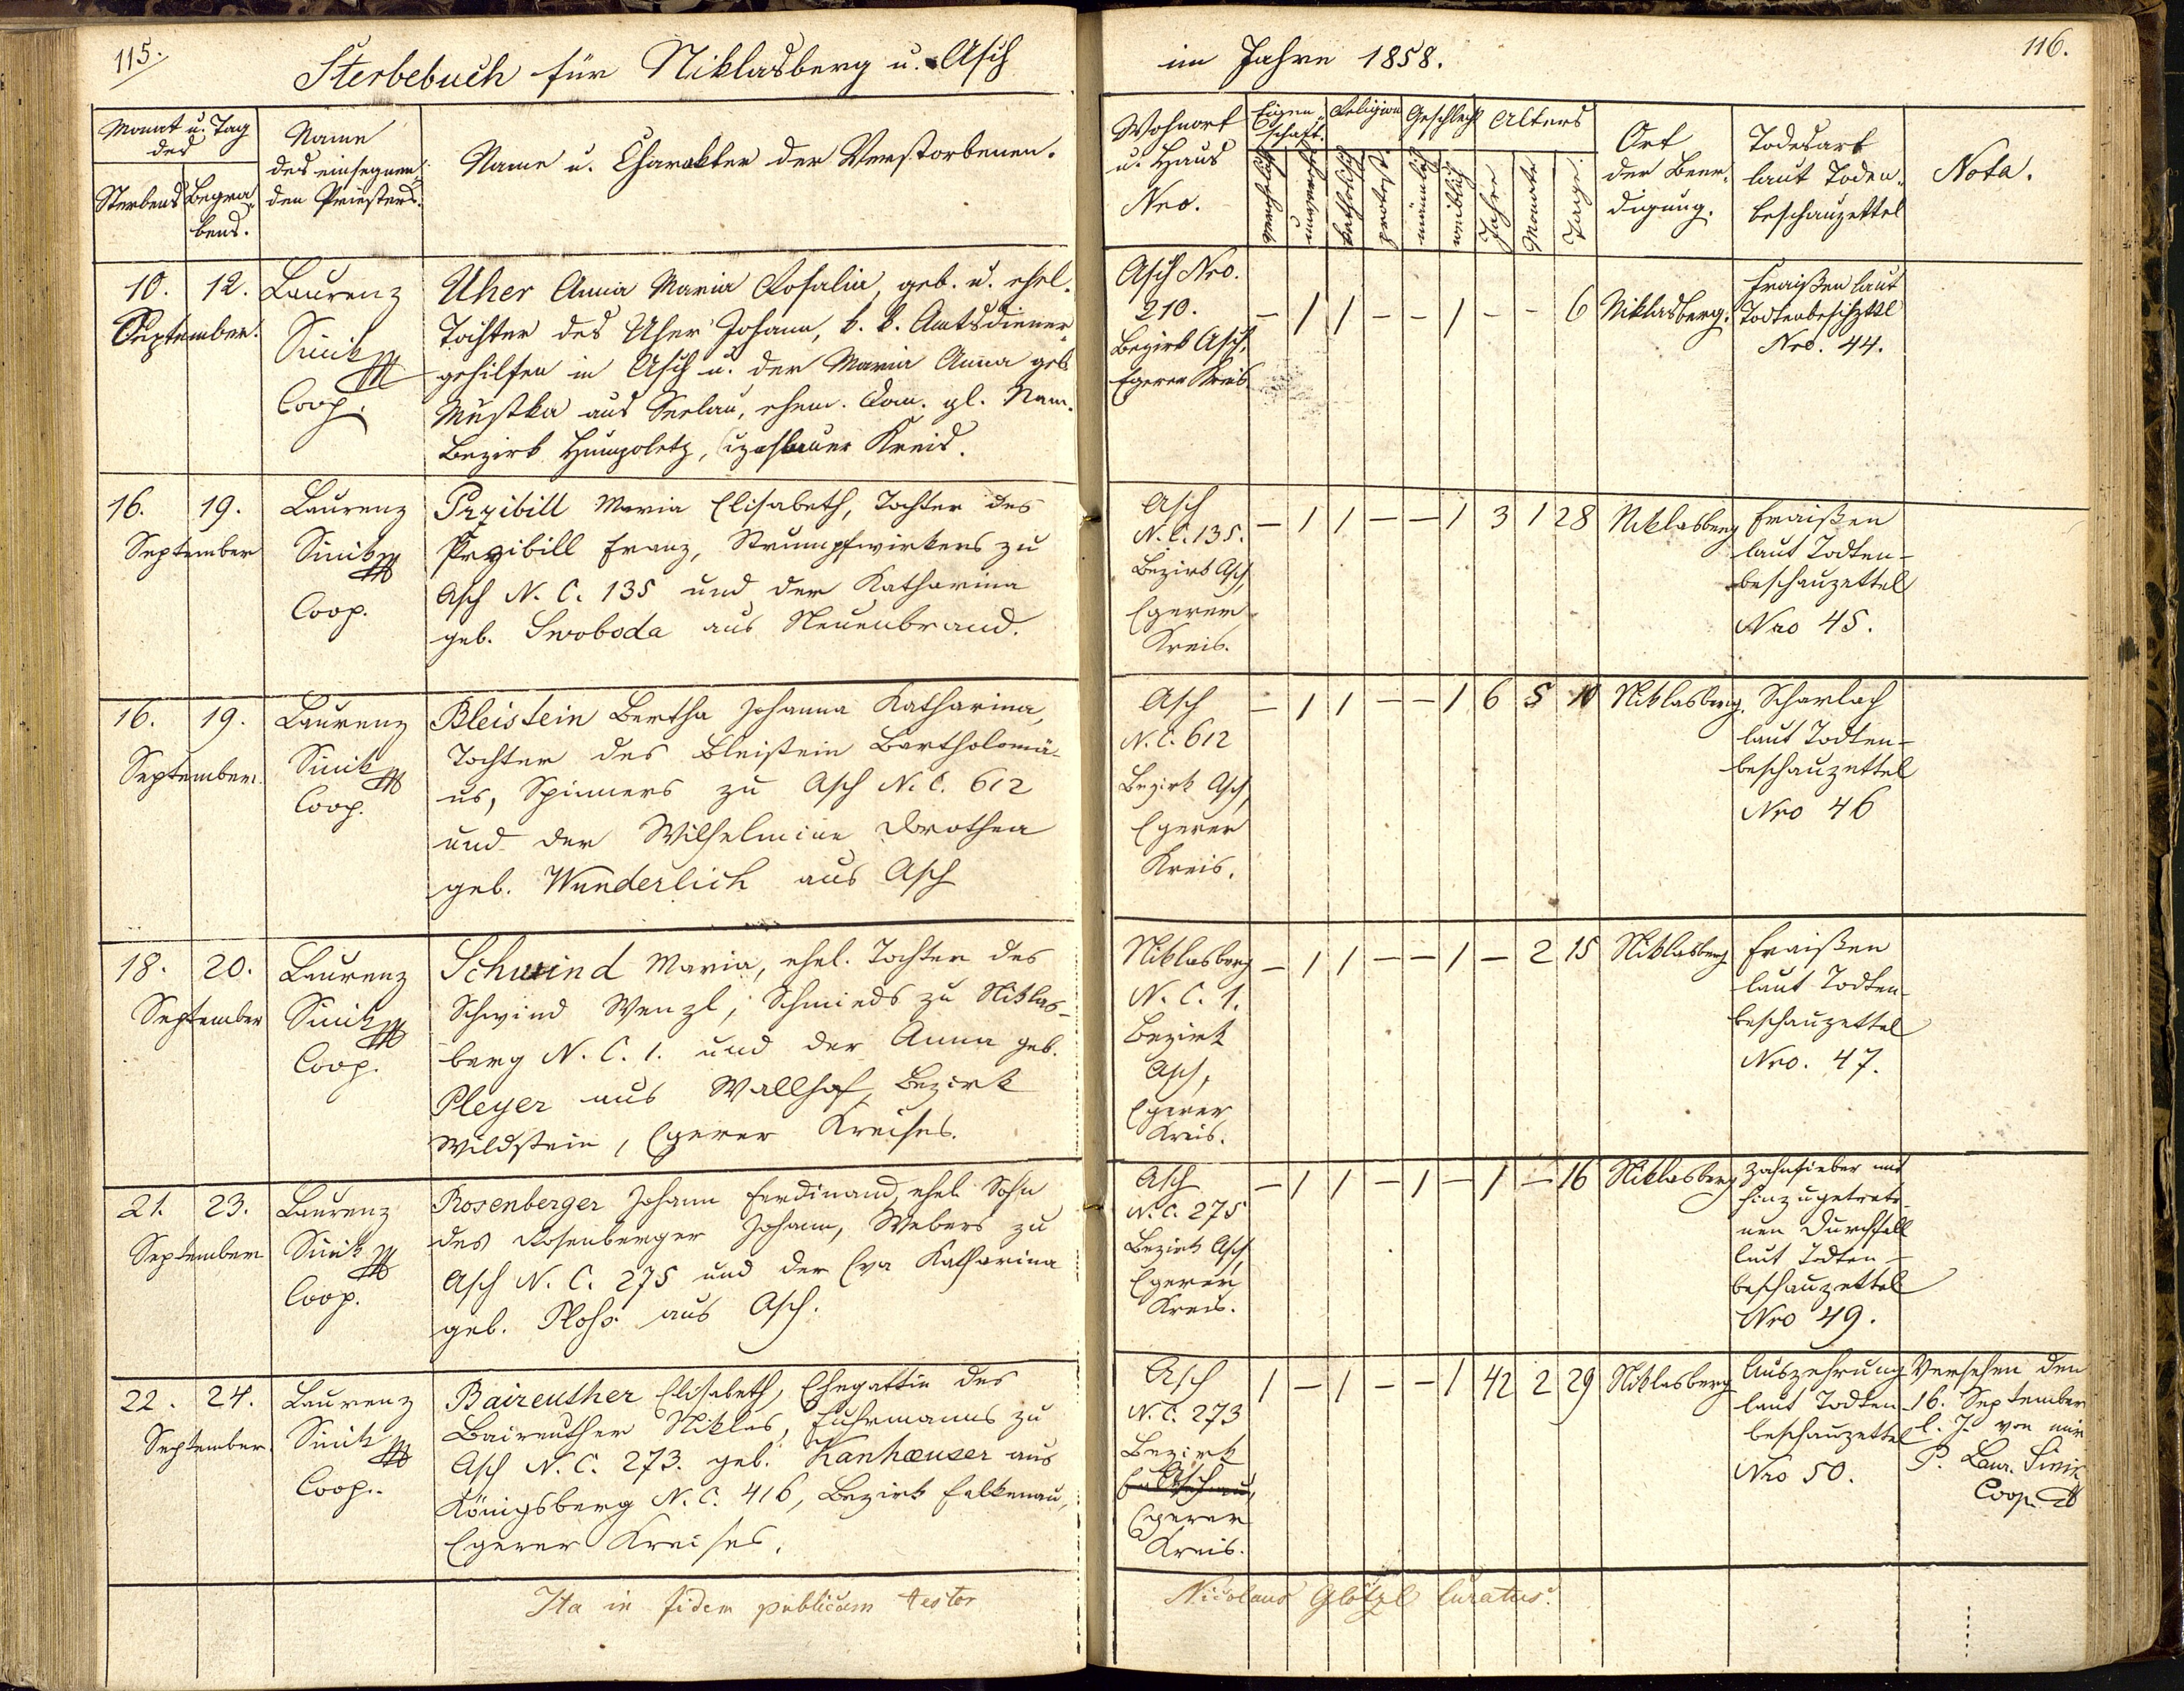 115.
Sterbebuch für Niklasberg u. Asch
Monat u. Tag
des
Sterbens
Begra-
bens.
Name
des einsegnen-
den Priesters.
Name u. Charakter der Verstorbenen.
10. 12.
September.
Laurenz
Sinik
Coop.
Uher Anna Maria Rosalia, geb. u. ehel.
Tochter des Uher Johann, k. k. Amtsdiener-
gehilfen in Asch u. der Maria Anna geb.
Mustka aus Seelau, ehem. Dom. gl. Nam.
Bezirk Humpoletz, Czaslauer Kreis.
16. 19.
September
Laurenz
Sinik
Coop.
Przibill Maria Elisabeth, Tochter des
Przibill Franz, Strumpfwirkers zu
Asch N. C. 135 und der Katharina
geb. Swoboda aus Neuenbrand.
16. 19.
September.
Laurenz
Sinik
Coop.
Bleistein Bertha Johanna Katharina,
Tochter des Bleistein Bartholomä-
us, Spinners zu Asch N. C. 612
und der Wilhelmine Dorothea
geb. Wunderlich aus Asch
18. 20.
September
Laurenz
Sinik
Coop.
Schwind Maria, ehel. Tochter des
Schwind Wenzl, Schmieds zu Niklas-
berg N. C. 1. und der Anna geb.
Pleyer aus Wallhof, Bezirk
Wildstein, Egerer Kreises.
21. 23.
September
Laurenz
Sinik
Coop.
Rosenberger Johann Ferdinand, ehel. Sohn
des Rosenberger Johann, Webers zu
Asch N. C. 275 und der Eva Katharina
geb. Ploß aus Asch.
22. 24.
September.
Laurenz
Sinik
Coop.
Baireuther Elisabeth, Ehegattin des
Baireuther Niklas, Fuhrmanns zu
Asch N. C. 273. geb. Kanhæuser aus
Königsberg N. C. 416, Bezirk Falkenau,
Egerer Kreises.
Ita in fidem publicam testor
im Jahre 1858.
116.
Wohnort
u. Haus
Nro.
Eigen-
schaft.
Religion
Geschlecht
Alters
verehelicht
unverehel.
katholisch
protest.
männlich
weiblich
Jahre
Monate
Tage
Ort
der Beer-
digung.
Todesart
laut Toden-
beschauzettel
Nota.
Asch Nro.
210.
Bezirk Asch,
Egerer Kreis
– 1 1 – – 1 – – 6
Niklasberg.
Fraißen laut
Todtenbeschzttl
Nro. 44.
Asch
N. C. 135.
Bezirk Asch,
Egerer
Kreis.
– 1 1 – – 1 3 1 28
Niklasberg
Fraißen
laut Todten-
beschauzettel
Nro 45.
Asch
N. C. 612
Bezirk Asch,
Egerer
Kreis.
– 1 1 – – 1 6 5 10
Niklasberg.
Scharlach
laut Todten-
beschauzettel
Nro 46
Niklasberg
N. C. 1.
Bezirk
Asch,
Egerer
Kreis.
– 1 1 – – 1 – 2 15
Niklasberg
Fraißen
laut Todten-
beschauzettel
Nro. 47.
Asch
N. C. 275
Bezirk Asch,
Egerer
Kreis.
– 1 1 – 1 – 1 – 16
Niklasberg
Zahnfieber mit
hinzugetrete-
nen Durchfall
laut Todten-
beschauzettel
Nro 49.
Asch
N. C. 273
Bezirk
Asch
Egerer
Kreis.
1 – 1 – – 1 42 2 29
Niklasberg
Auszehrung
laut Todten-
beschauzettel
Nro 50.
Versehen den
16. September
l. J. von mir
P. Laur. Sinik
Coop.
Nicolaus Glötzl Curatus.